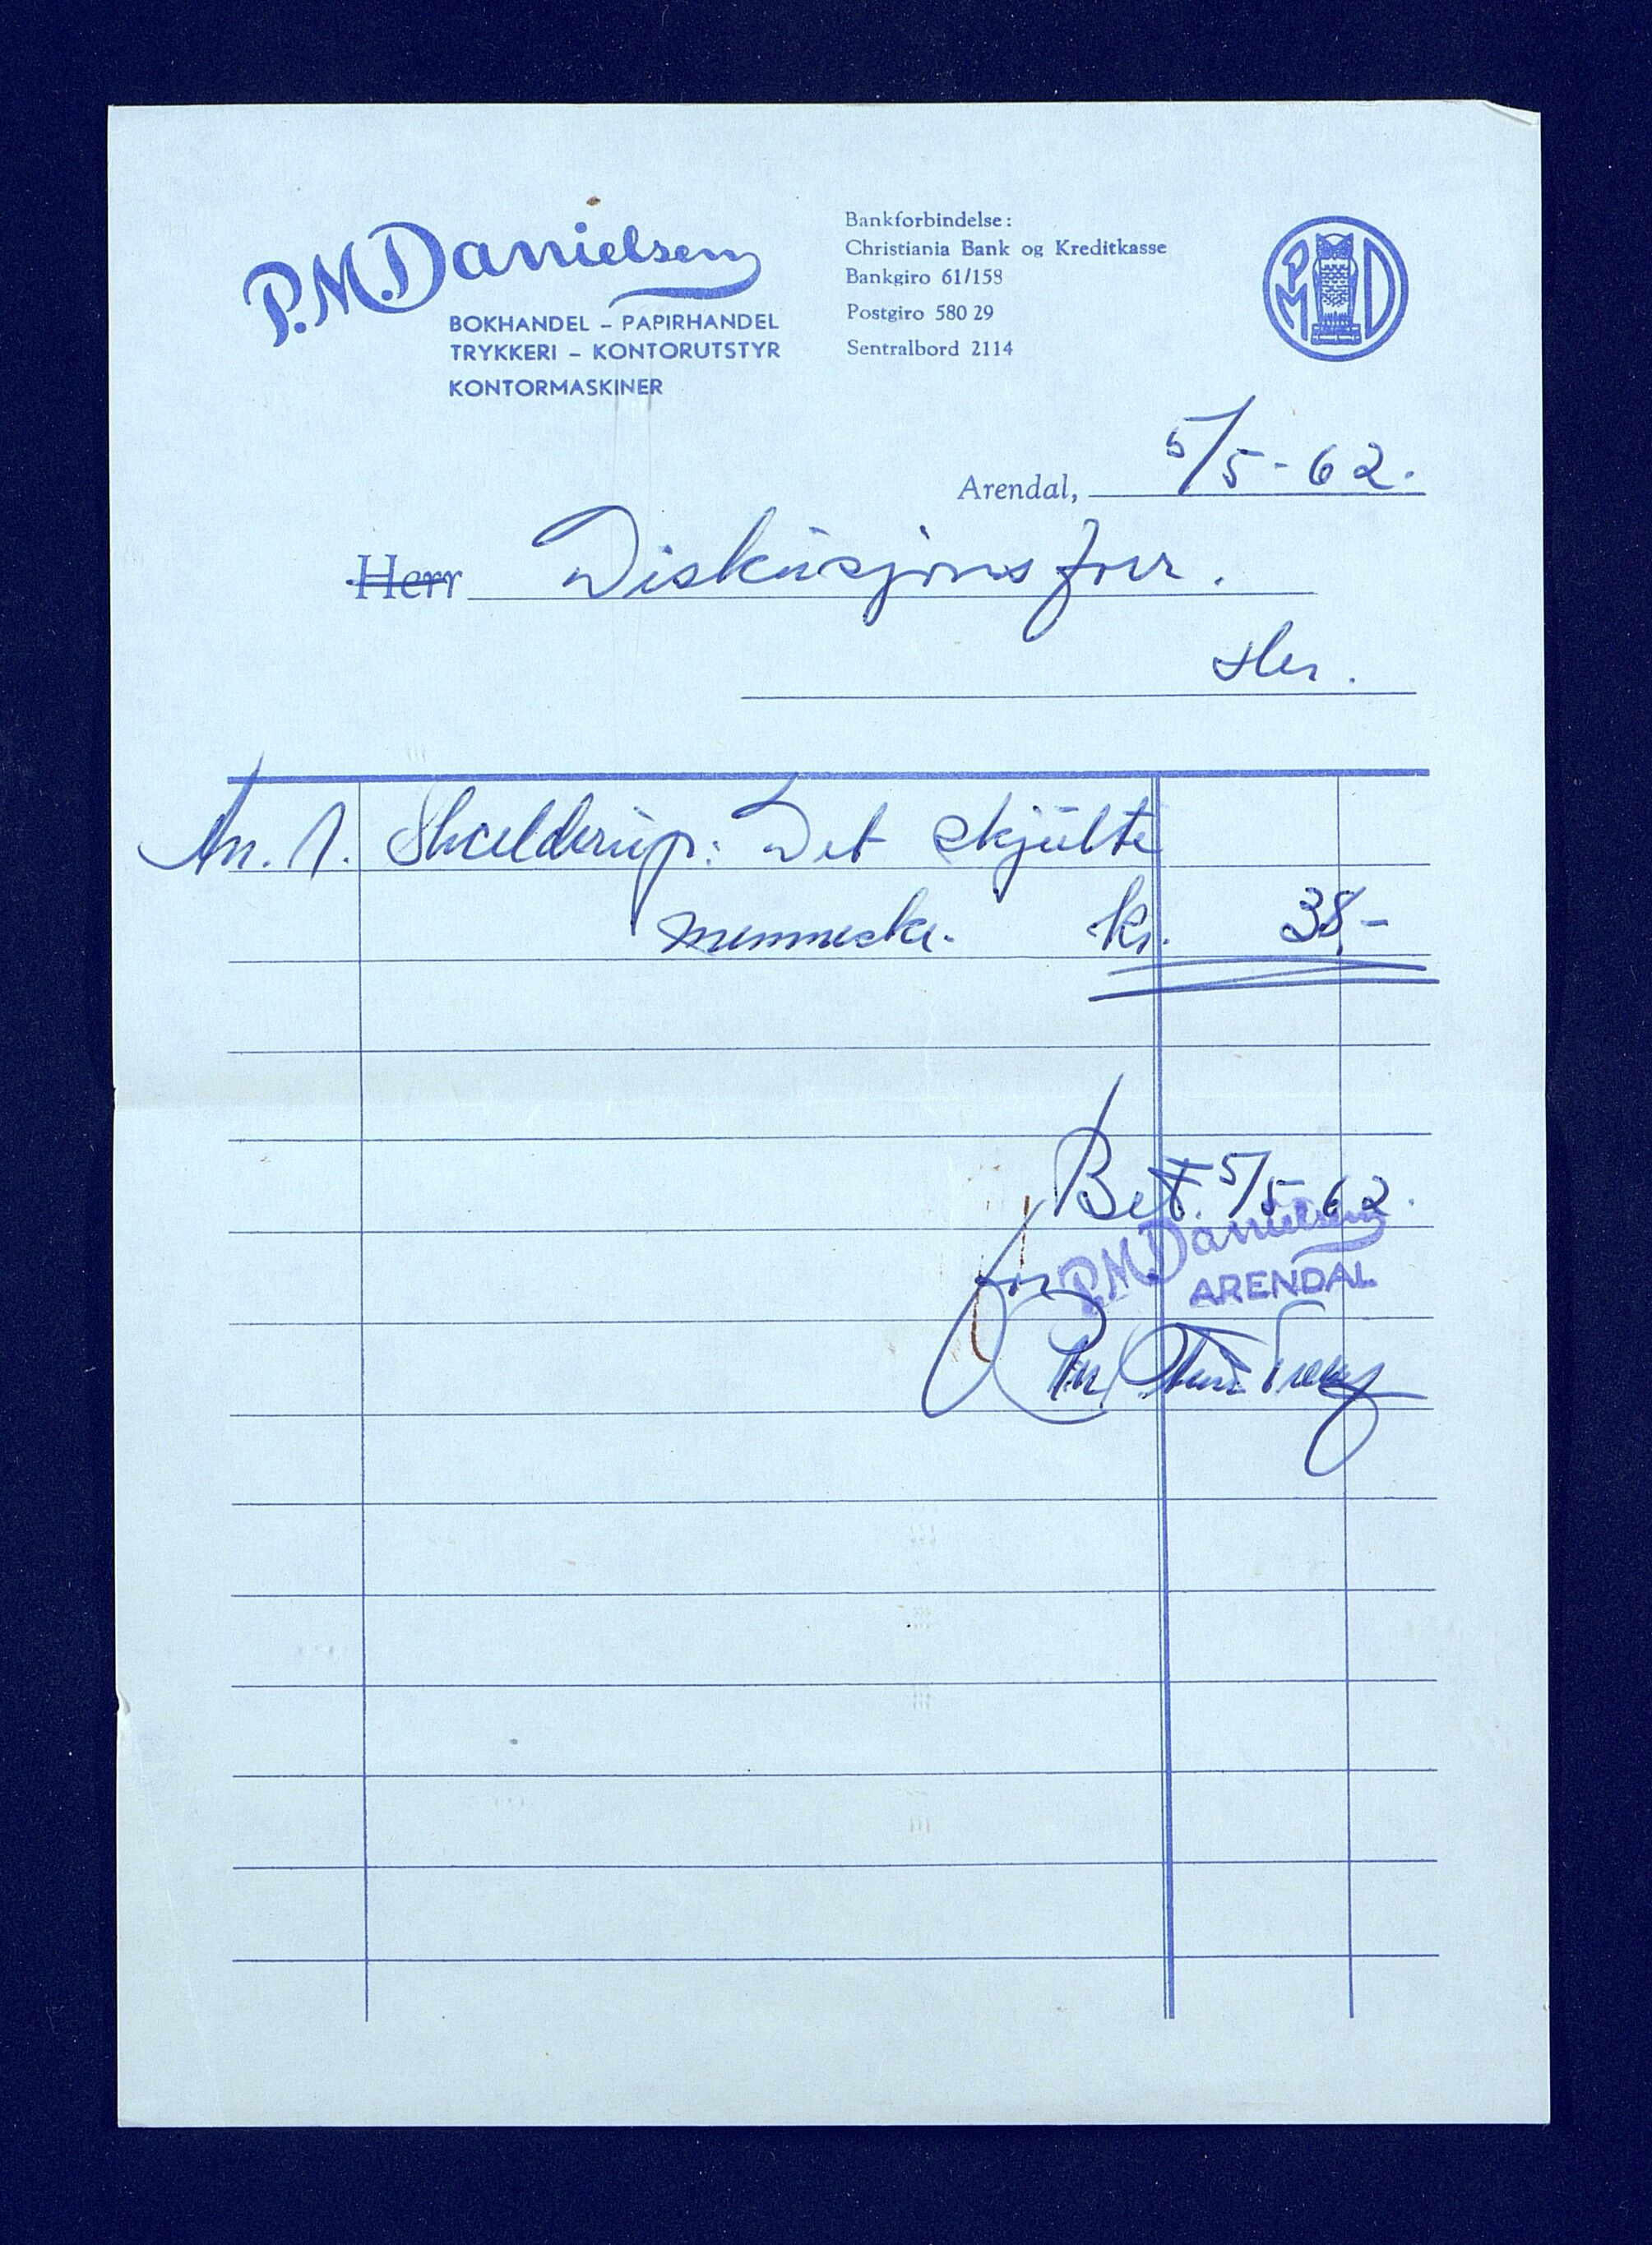 P.M. Danielsen
BOKHANDEL – PAPIRHANDEL
TRYKKERI – KONTORUTSTYR
KONTORMASKINER
Bankforbindelse:
Christiania Bank og Kreditkasse
Bankgiro 61/158
Postgiro 580 29
Sentralbord 2114
P M D
Arendal, 5/5-62.
Herr Diskusjonsforr.
Her.
An. 1. Schjelderup: Det skjulte
menneske. kr. 38,-
Bet. 5/5 62.
for P.M. Danielsen
ARENDAL